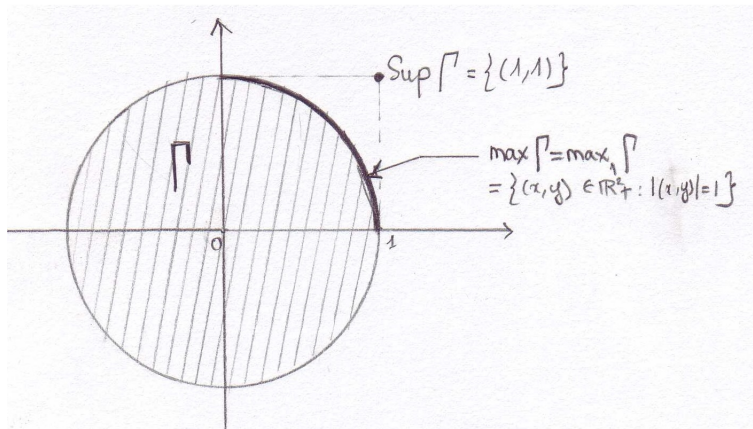 Sup Γ = {(1,1)}
Γ
max Γ = max₁ Γ
= {(x,y) ∈ ℝ²₊ : |(x,y)| = 1}
0
1